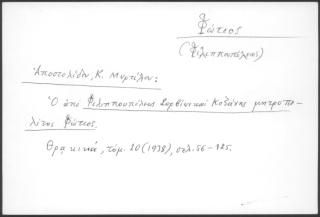 Φώτιος
(Φιλιππουπόλεως)
Ἀποστολίδου, Κ. Μυρτίλου:
Ὁ ἀπὸ Φιλιππουπόλεως Σερβίων καὶ Κοζάνης μητροπο-
λίτης Φώτιος.
Θρακικά, τόμ. 10 (1938), σελ. 56-125.